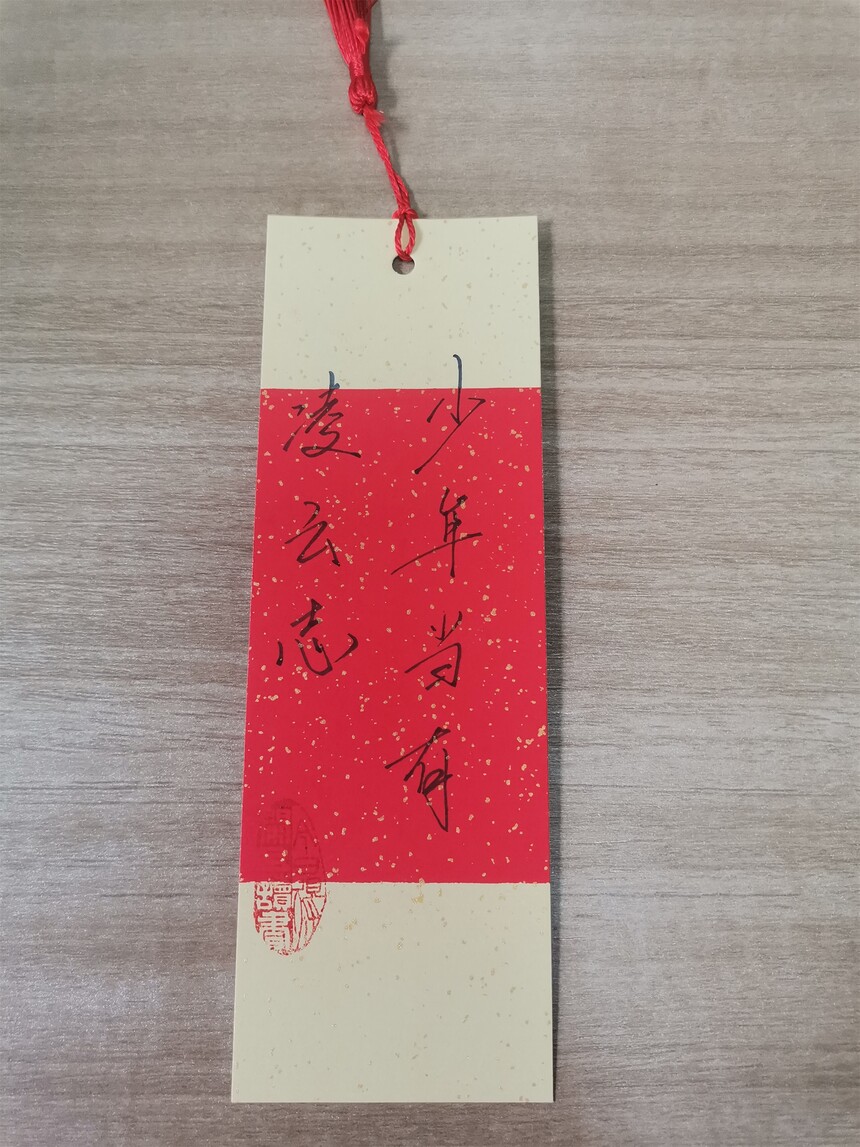 少年当有
凌云志
讀書